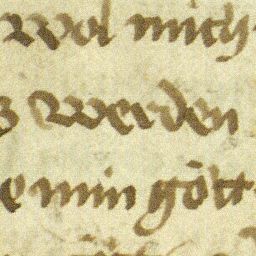 wol mich
werden
min gött